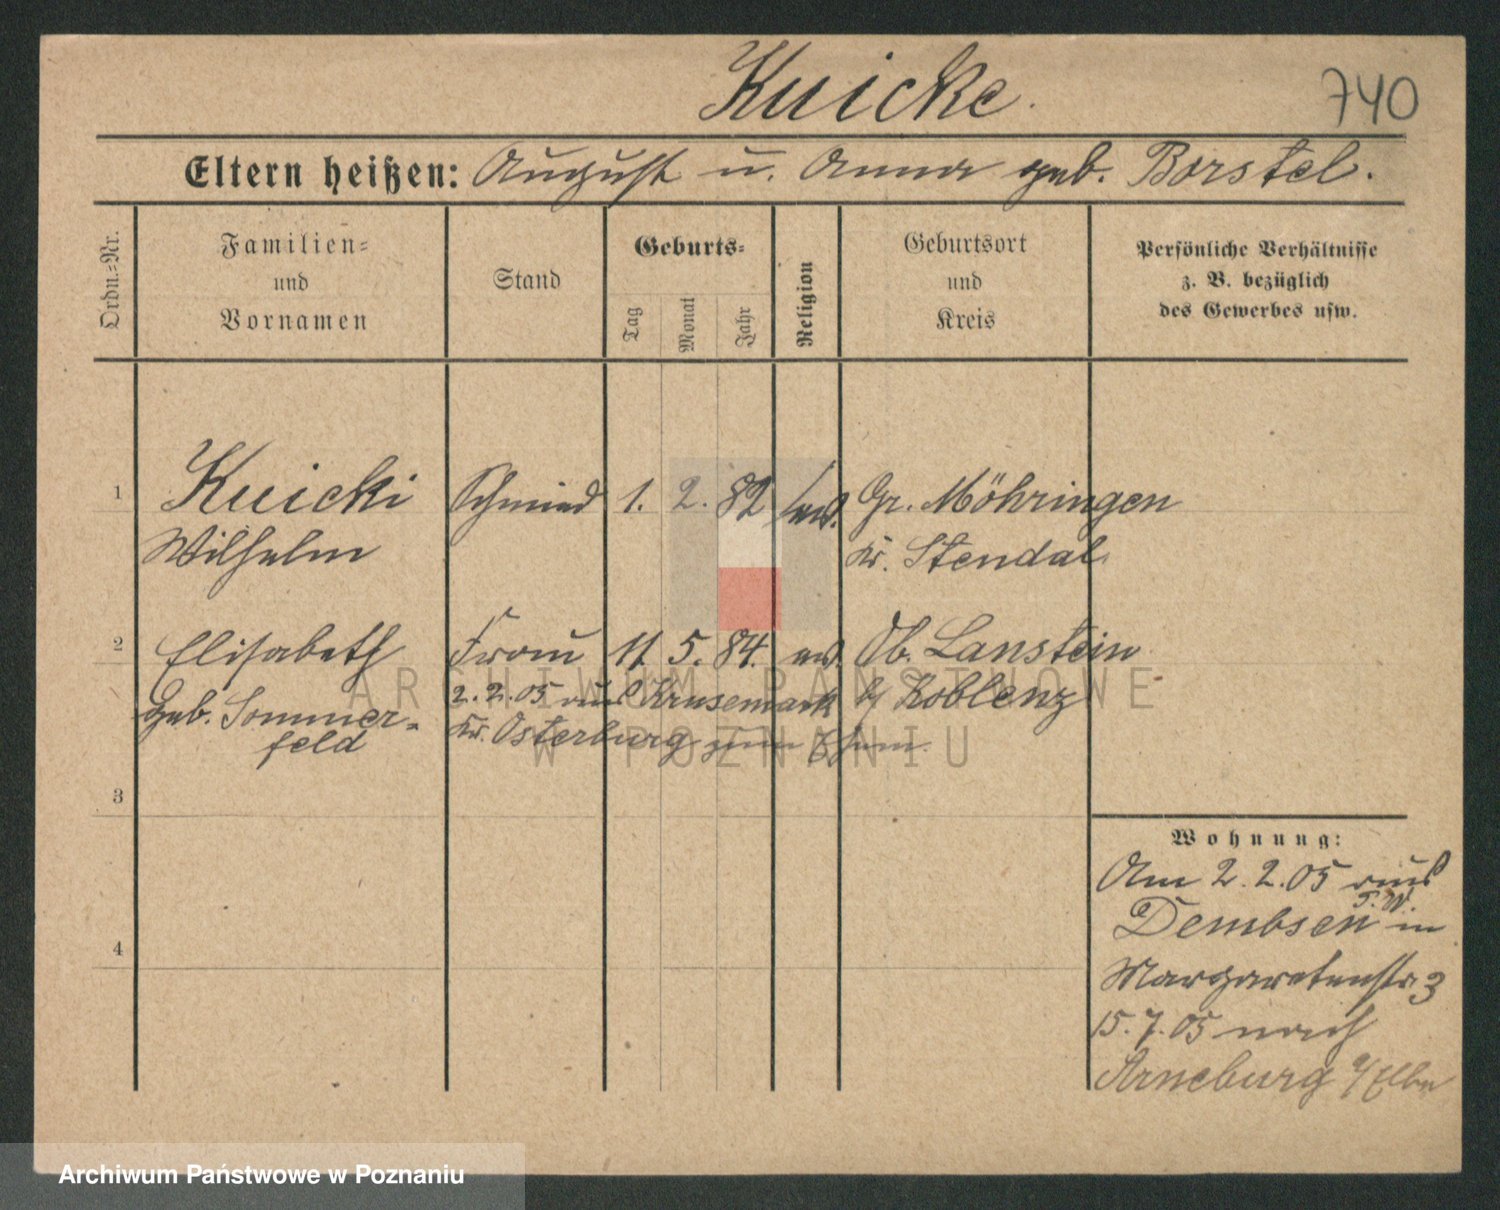 Kuicke.
740
Eltern heißen: August u. Anna geb. Borstel.
Ordn.-Nr.
Familien-
und
Vornamen
Stand
Geburts-
Tag
Monat
Jahr
Religion
Geburtsort
und
Kreis
Persönliche Verhältnisse
z. B. bezüglich
des Gewerbes usw.
1
Kuicki Schmied 1. 2. 82 Gr. Möhringen
Wilhelm Kr. Stendal.
2
Elisabeth Frau 11. 5. 84. Ob. Lanstein
geb. Sommer- 2.2.05 aus Krusemark b/ Koblenz
feld Kr. Osterburg zum Ehem.
3
4
Wohnung:
Am 2.2.05 aus
Dembsen P.W. in
Margaretenstr 3
15.7.05 nach
Arneburg a/Elbe
ARCHIWUM PAŃSTWOWE
W POZNANIU
Archiwum Państwowe w Poznaniu